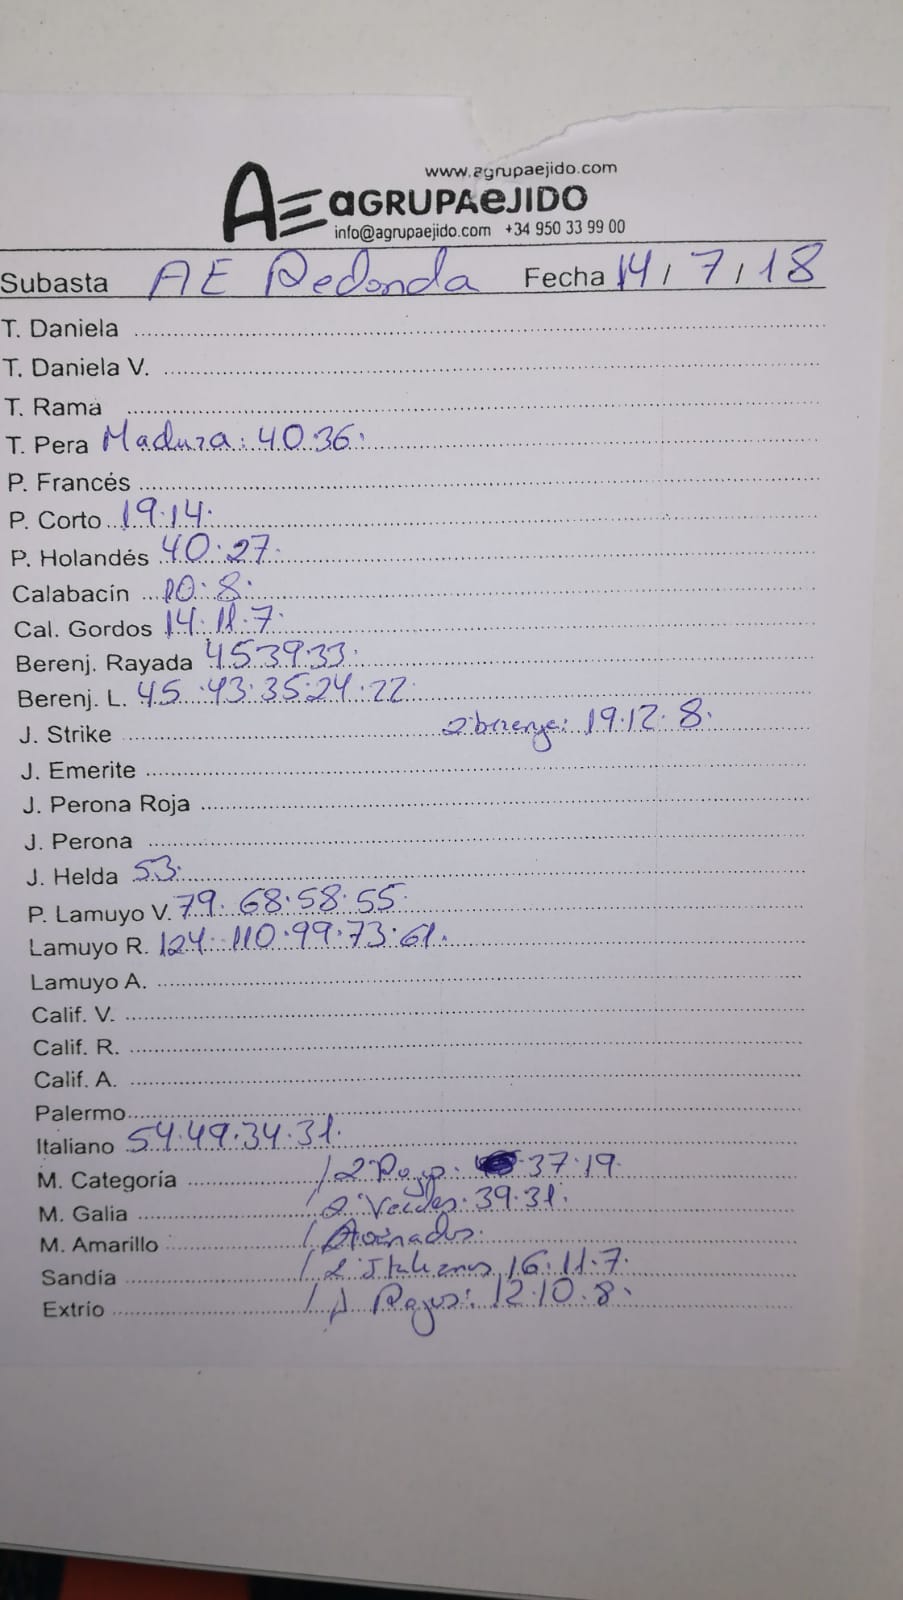 www.agrupaejido.com
AE aGRUPAeJIDO
info@agrupaejido.com +34 950 33 99 00
Subasta AE Redonda Fecha 14/7/18
T. Daniela
T. Daniela V.
T. Rama
T. Pera Madura: 40.36.
P. Francés
P. Corto 19.14.
P. Holandés 40.27.
Calabacín 10.8.
Cal. Gordos 14.11.7.
Berenj. Rayada 45 39.33.
Berenj. L. 45.43.35.24.22
J. Strike 2 berenge: 19.12.8.
J. Emerite
J. Perona Roja
J. Perona
J. Helda 53.
P. Lamuyo V. 79.68.58.55.
Lamuyo R. 124.110.99.73.61.
Lamuyo A.
Calif. V.
Calif. R.
Calif. A.
Palermo
Italiano 54.49.34.31.
M. Categoría / 2 Rojos: 37.19.
M. Galia / 2 Verdes. 39.31.
M. Amarillo / Asurados.
Sandía / 2 Italianos 16.11.7.
Extrío / Rojos: 12.10.8.